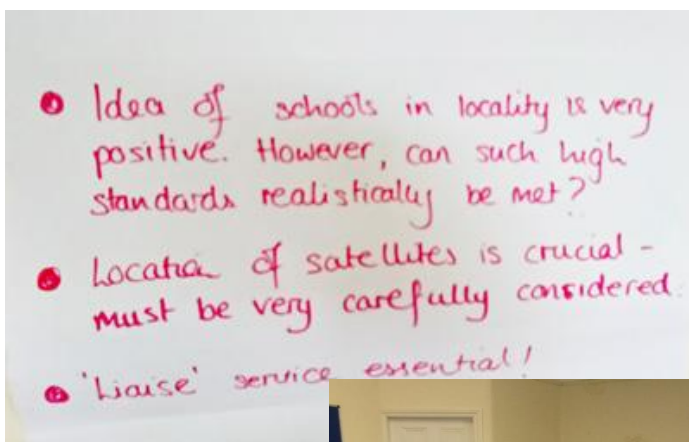 • Idea of schools in locality is very
positive. However, can such high
standards realistically be met?
• Location of satellites is crucial -
must be very carefully considered.
• 'Liaise' service essential!